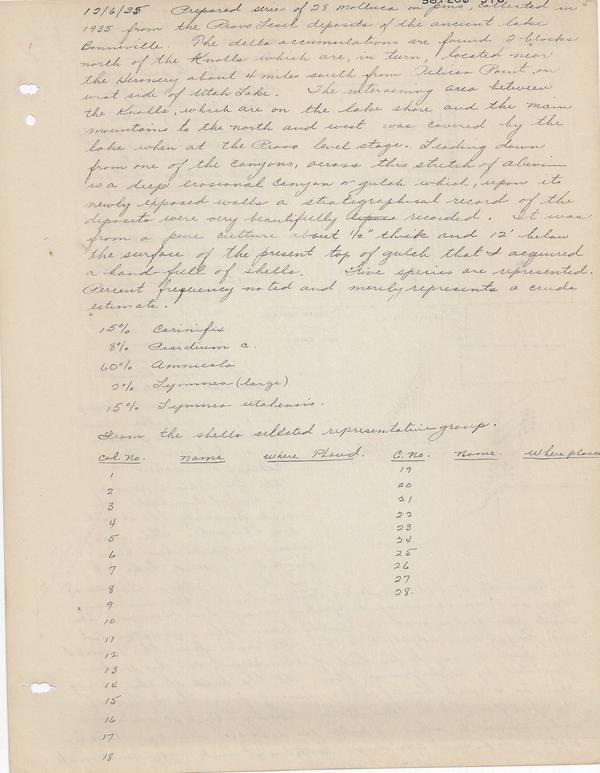 12/6/35 Prepared series of 28 mollusca on pins, collected in
1935 from the Provo Level deposits of the ancient lake
Bonneville. The delta accumulations are found 2 blocks
north of the Knolls which are, in turn, located near
the Heronery about 4 miles south from Pelican Point, on
west side of Utah Lake. The intervening area between
the Knolls, which are on the lake shore and the main
mountains to the north and west was covered by the
lake when at the Provo level stage. Leading down
from one of the canyons, across this stretch of aluvium
is a deep erosional canyon or gulch which, upon its
newly exposed walls a stratigraphical record of the
deposits were very beautifully recorded. It was
from a pure culture about 1/2" thick and 12' below
the surface of the present top of gulch that I acquired
a hand full of shells. Five species are represented.
Percent frequency noted and merely represents a crude
estimate.
15% Carinifex
8% Pisidium c.
60% Amnicola
2% Lymnea (large)
15% Lymnea utahensis.
From the shells selected representative group.
Col. No. name where Placed. C. No. Name. Where placed
1 19
2 20
3 21
4 22
5 23
6 24
7 25
8 26
9 27
10 28.
11
12
13
14
15
16
17
18